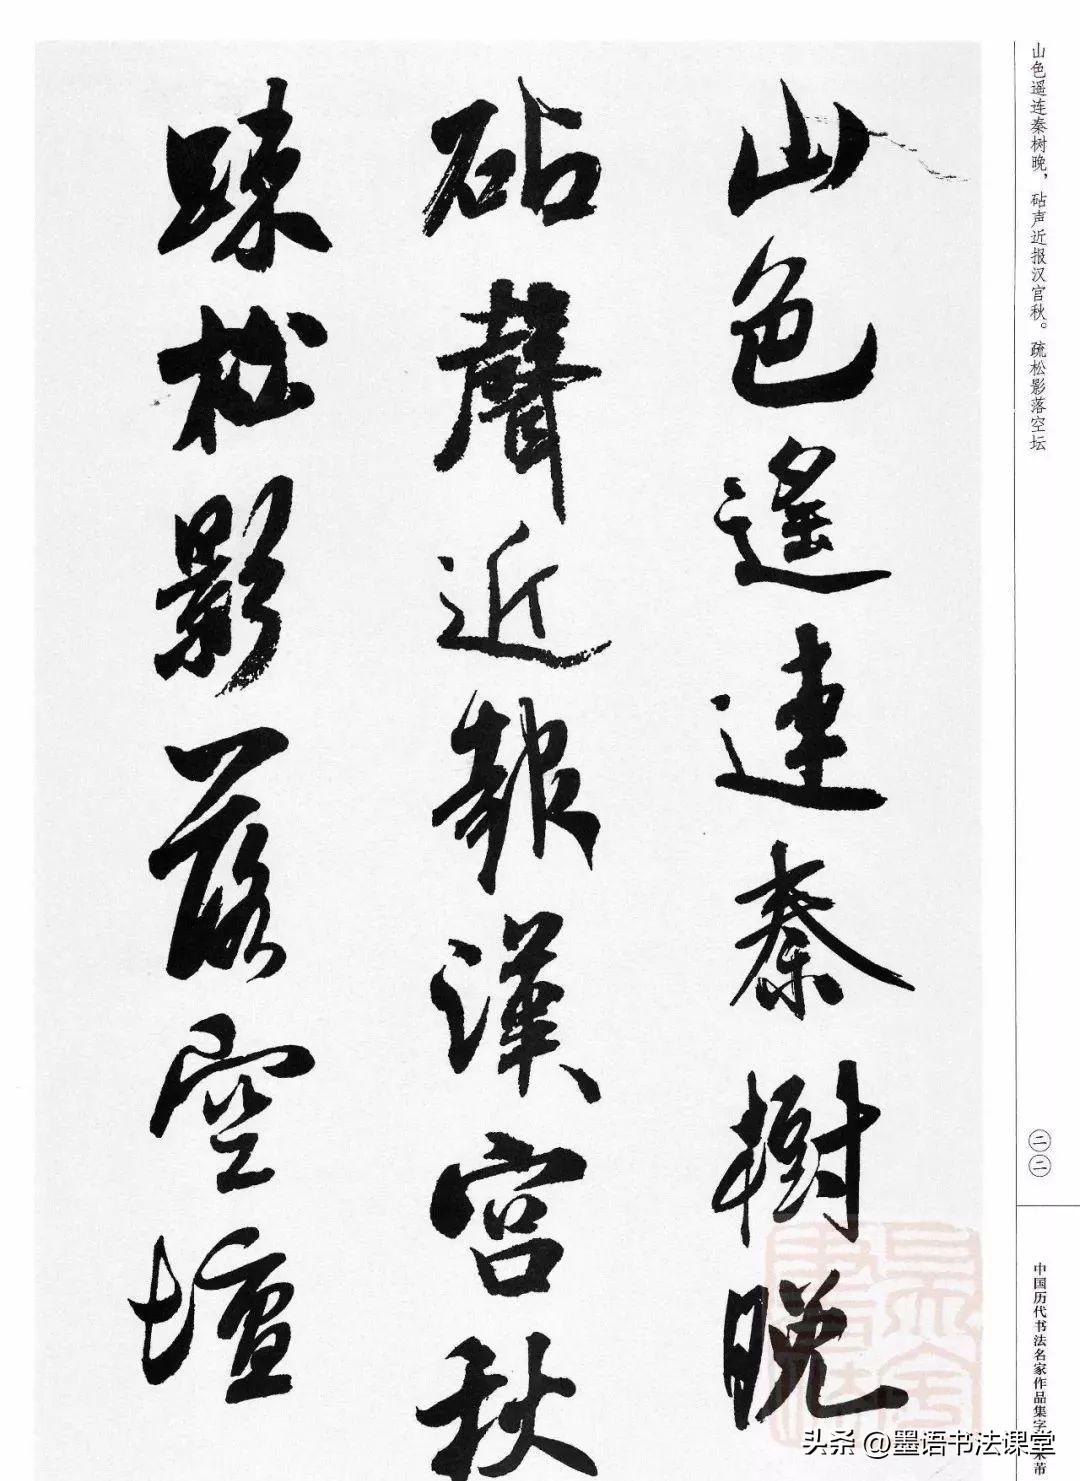 山色遥连秦树晚，砧声近报汉宫秋。疏松影落空坛
山色遙連秦樹晚
砧聲近報漢宮秋
踈松影落空壇
二二
中国历代书法名家作品集字
头条 @墨语书法课堂